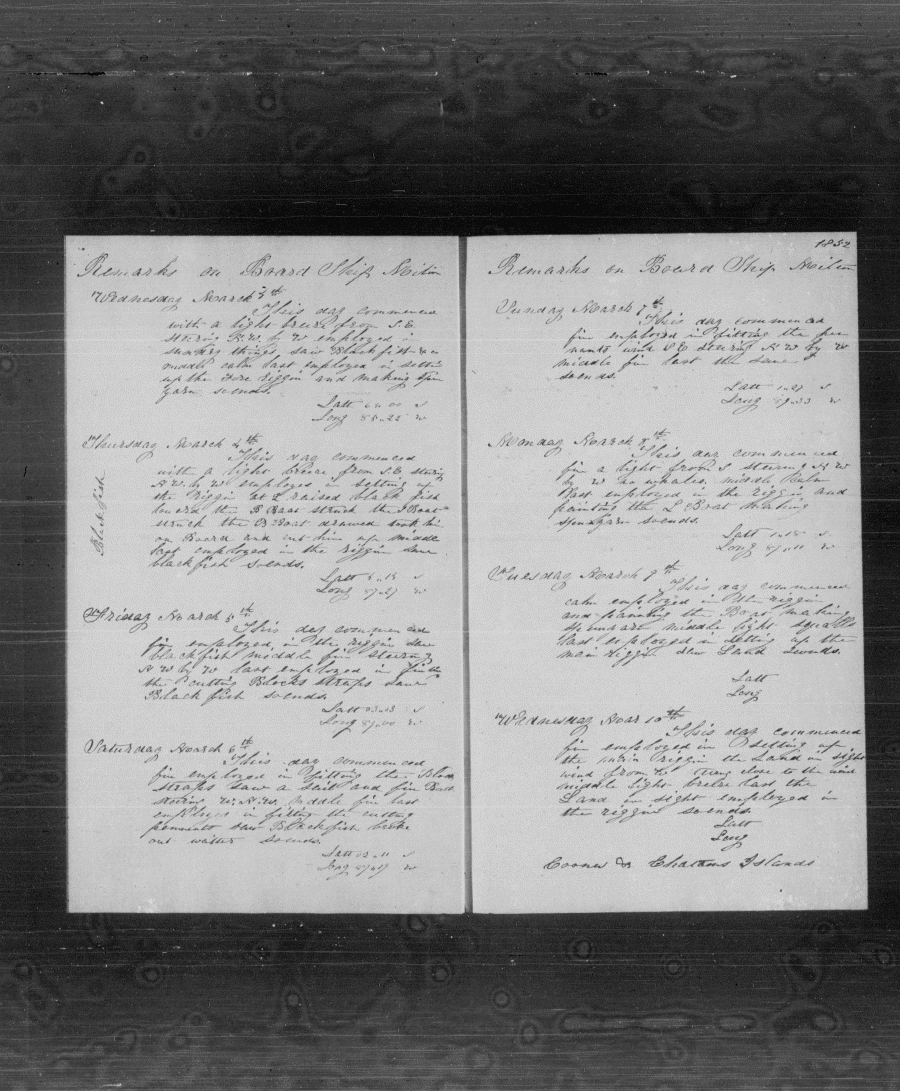 Remarks on Board Ship Milton
Wednesday March 3th
This day commenced
with a light breeze from S.E.
stering N.W. by W employed in
sundry things, saw Blackfish
middle calm last employed in setting
up the Fore riggin and making spun
yarn soends.
Latt S
Long 85..22 W
Thursday March 4th
This day commenced
with a light breeze from S.E stering
N.W. by W employed in setting up
the riggin at 2 raised black fish
lowerd the B Boat struck the Boat
struck the B Boat drawed took him
on Board and cut him up middle
last employed in the riggin saw
blackfish soends.
Black fish
Latt S
Long 87..27 W
Friday March 5th
This day commenced
fin employed in the riggin saw
blackfish middle fin stering
N W by W last employed in
the cutting Blocks straps saw
Black fish soends.
Latt 03..03 S
Long 89..00 W
Saturday March 6th
This day commenced
fin employed in fitting the Block
straps saw a sail and fin Back
stering W.N.W. middle fin last
employed in fitting the cutting
pennants saw Blackfish broke
out watter soends.
Latt 02..11 S
Long 89..19 W
1852
Remarks on Board Ship Milton
Sunday March 7th
This day commenced
fin employed in fitting the pen
nants wind S E stering N W by W
middle fin last the same
soends.
Latt 1..27 S
Long 89..33 W
Monday March 8th
This day commenced
fin a light from S stering N W
by W no whales. middle Calm
last employed in the riggin and
painting the L Boat making
spunyarn soends.
Latt 1..18 S
Long 89..11 W
Tuesday March 9th
This day commenced
calm employed in the riggin
and painting the Boat making
middle light squalls
last employed in setting up the
main riggin saw Land soends.
Latt
Long
Wednesday Mar 10th
This day commenced
fin employed in setting up
the main riggin the Land in sight
wind from close to the wind
middle light breeze last the
Land in sight employed in
the riggin soends
Latt
Long
Chatham Islands